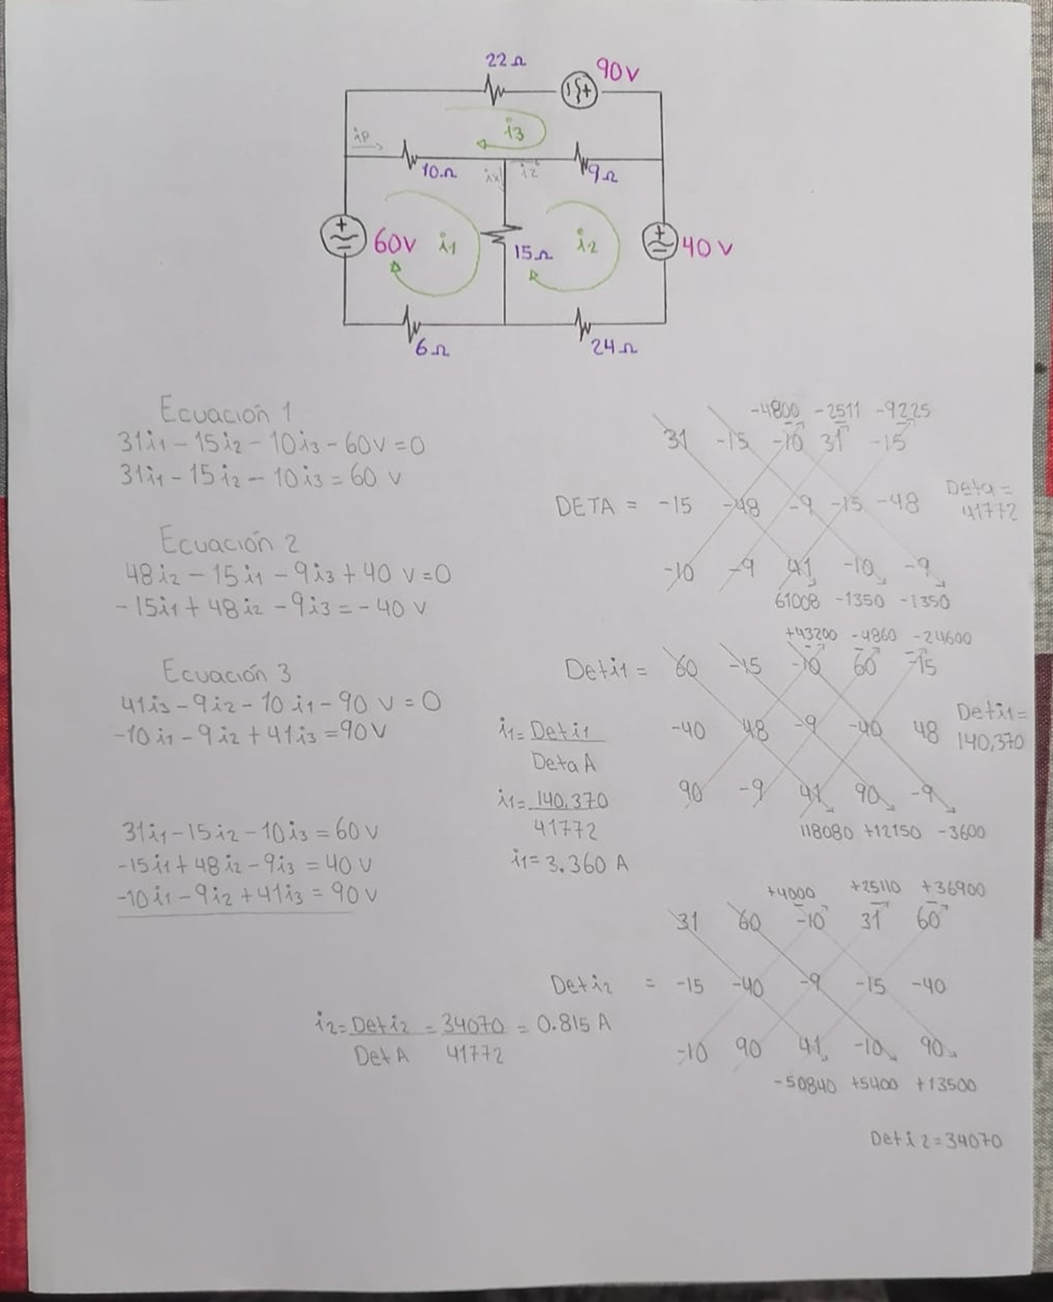 22Ω
90V
i3
ip
10Ω
ix
iz
9Ω
60V
i1
15Ω
i2
40V
6Ω
24Ω
Ecuación 1
31i1 - 15i2 - 10i3 - 60v = 0
31i1 - 15i2 - 10i3 = 60 v
Ecuación 2
48i2 - 15i1 - 9i3 + 40 v = 0
-15i1 + 48i2 - 9i3 = -40 v
Ecuación 3
41i3 - 9i2 - 10i1 - 90 v = 0
-10i1 - 9i2 + 41i3 = 90v
31i1 - 15i2 - 10i3 = 60v
-15i1 + 48i2 - 9i3 = 40 v
-10i1 - 9i2 + 41i3 = 90v
-4800 -2511 -9225
31 -15 -10 31 -15
DETA = -15 -48 -9 -15 -48
Deta =
41772
-10 -9 41 -10 -9
61008 -1350 -1350
+43200 -4860 -24600
Deti1 = 60 -15 -10 60 -15
-40 48 -9 -40 48
Deti1 =
140,370
90 -9 41 90 -9
118080 +12150 -3600
i1 = Deti1
DetaA
i1 = 140.370
41772
i1 = 3.360 A
+4000 +25110 +36900
31 60 -10 31 60
Deti2 = -15 -40 -9 -15 -40
-10 90 41 -10 90
-50840 +5400 +13500
Deti2 = 34070
i2 = Deti2 = 34070 = 0.815 A
DetA 41772